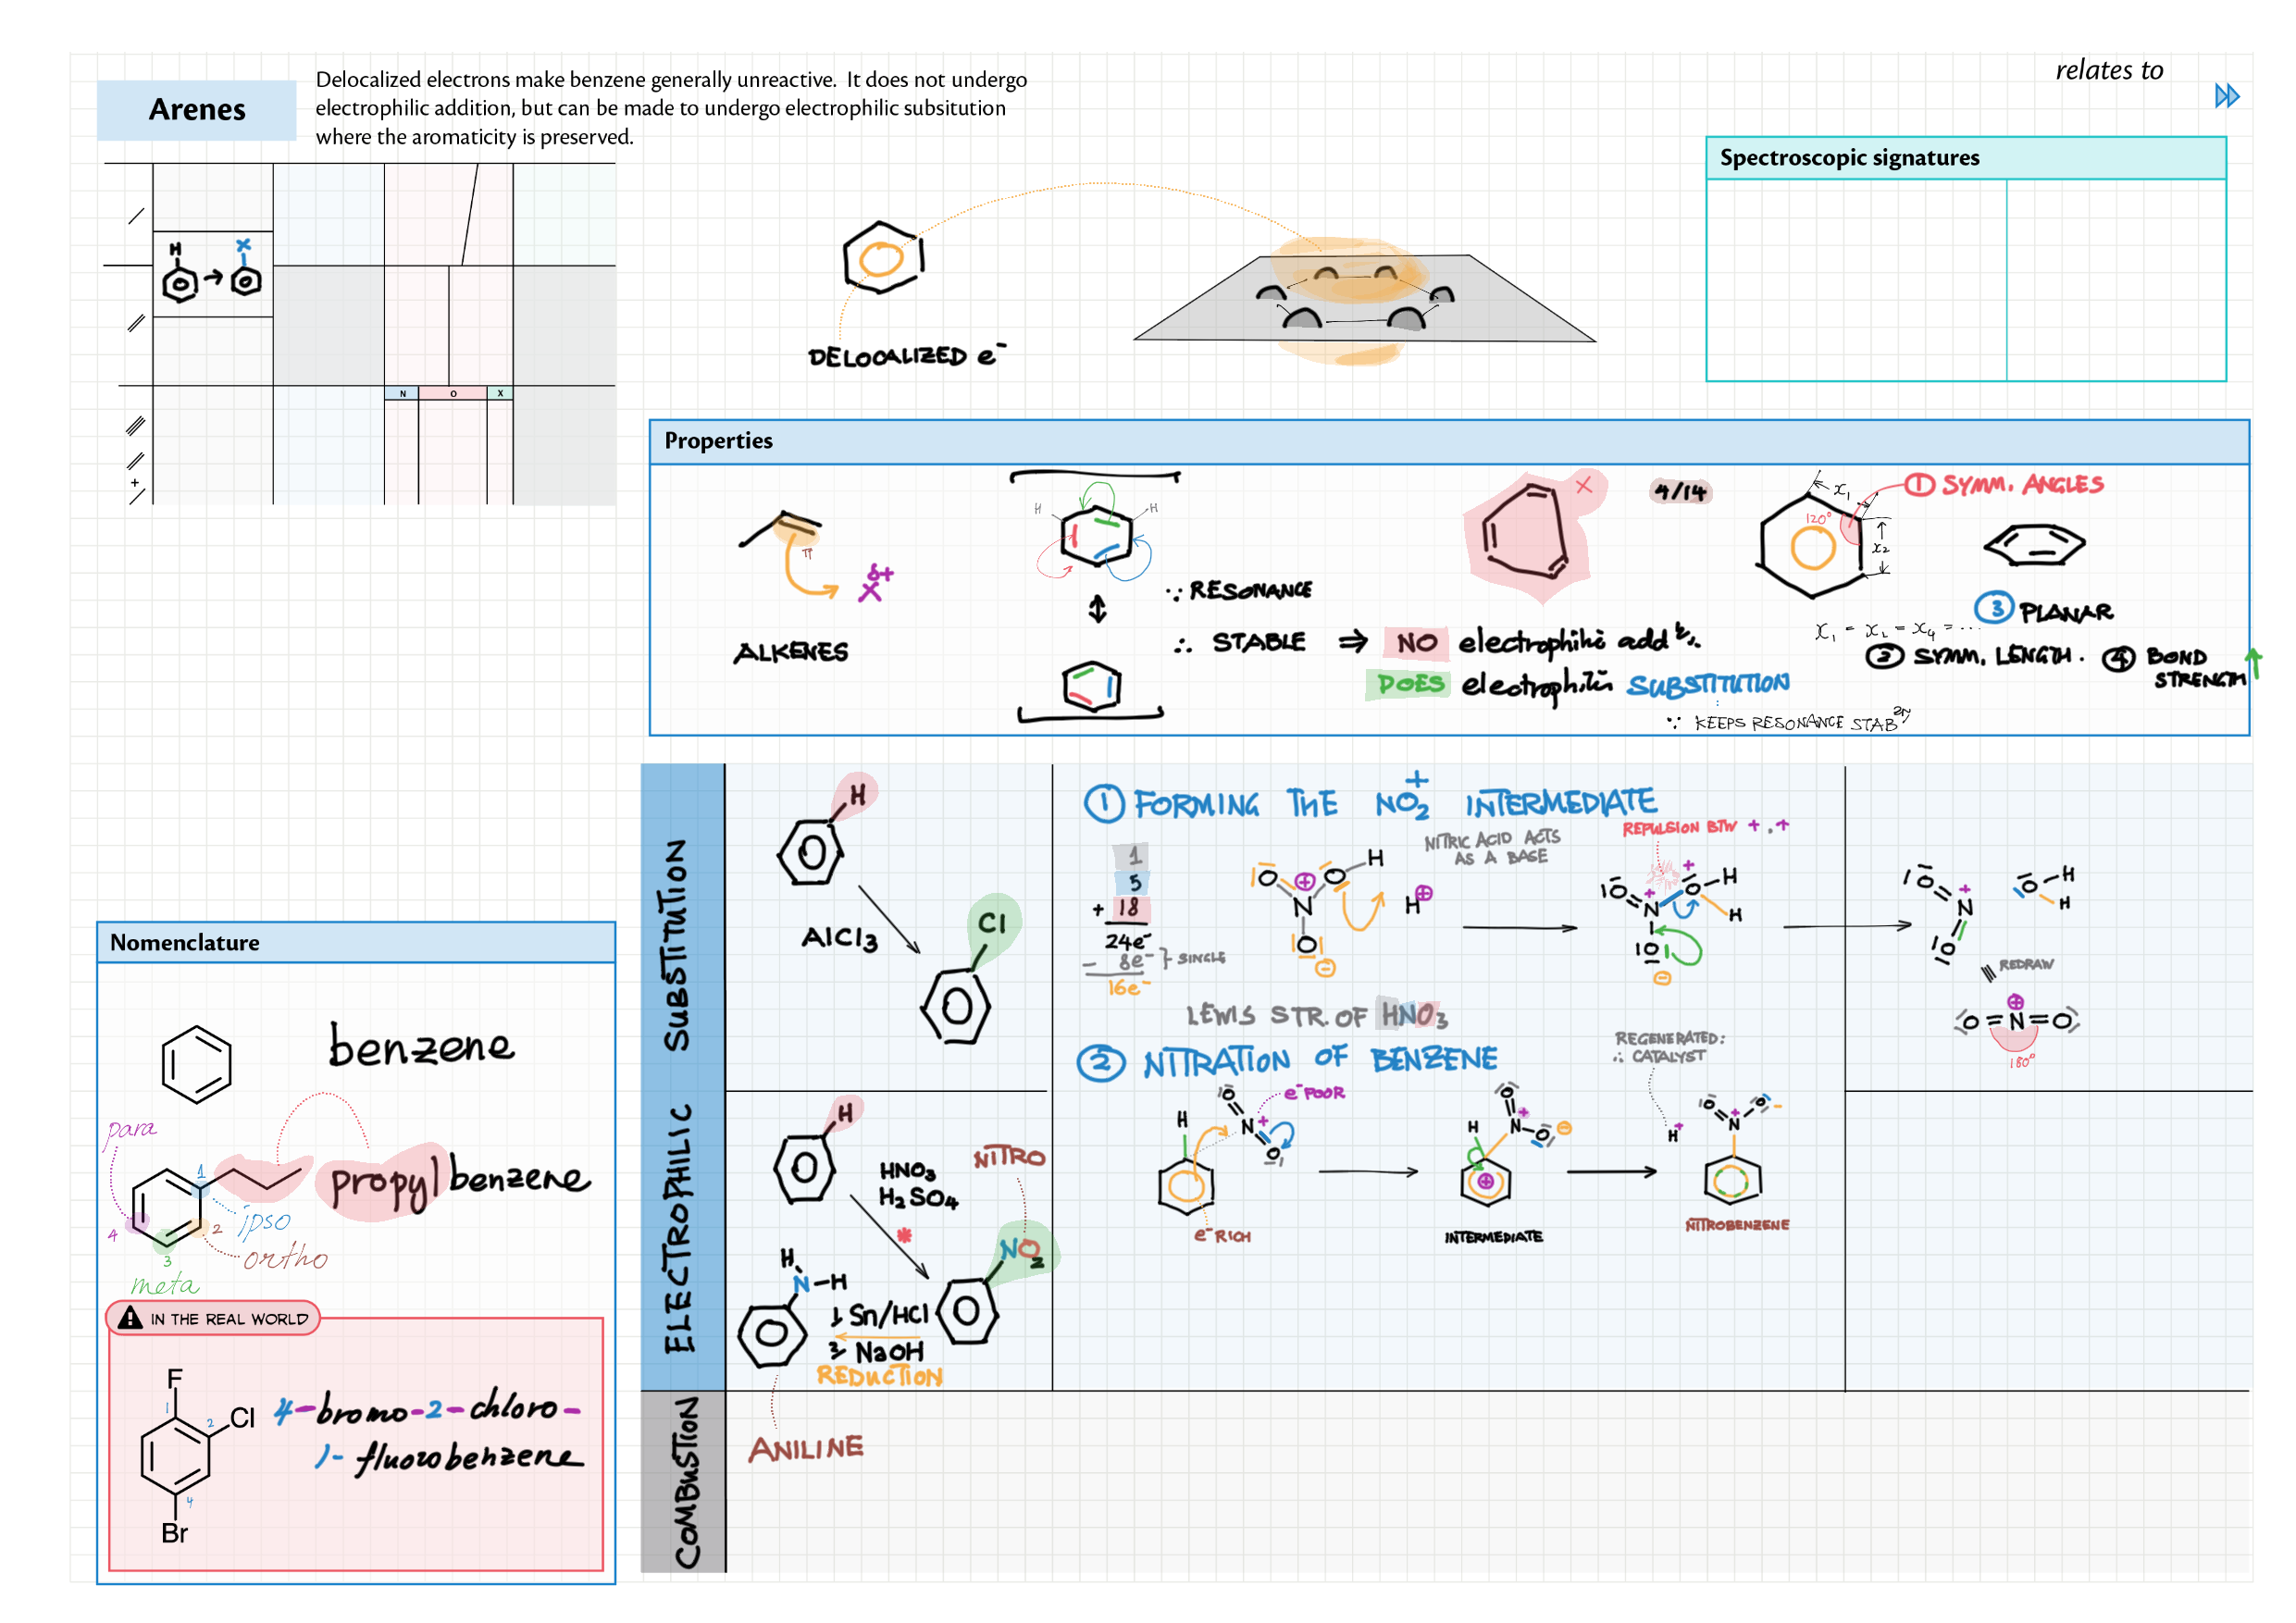 relates to
Arenes
Delocalized electrons make benzene generally unreactive. It does not undergo
electrophilic addition, but can be made to undergo electrophilic subsitution
where the aromaticity is preserved.
H
X
N
O
X
DELOCALIZED e⁻
Spectroscopic signatures
Properties
π
δ+
X
ALKENES
H
H
∵ RESONANCE
∴ STABLE ⇒ NO electrophilic addⁿ.
DOES electrophilic SUBSTITUTION
∵ KEEPS RESONANCE STABᶻᴺ
X
4/14
120°
x₁
x₂
① SYMM. ANGLES
③ PLANAR
x₁ = x₂ = x₄ = ...
② SYMM. LENGTH. ④ BOND
STRENGTH ↑
Nomenclature
benzene
para
1
propylbenzene
ipso
4
2
ortho
3
meta
IN THE REAL WORLD
F
1
2
Cl
4
Br
4-bromo-2-chloro-
1-fluorobenzene
ELECTROPHILIC SUBSTITUTION
H
AlCl₃
Cl
H
HNO₃
H₂SO₄
*
NITRO
NO₂
H
N-H
1, Sn/HCl
2, NaOH
REDUCTION
ANILINE
① FORMING THE NO₂⁺ INTERMEDIATE
1
5
+ 18
24e⁻
- 8e⁻ } SINGLE
16e⁻
O
⊕
O
H
N
O
⊖
H⊕
NITRIC ACID ACTS
AS A BASE
LEWIS STR. OF HNO₃
REPULSION BTW +,+
O
+
+
O-H
N
H
O
⊖
O
+
N
O
O-H
H
REDRAW
⊕
O=N=O
180°
② NITRATION OF BENZENE
H
O
N
+
O
e⁻ POOR
e⁻ RICH
H
O
+
N-O
⊖
⊕
INTERMEDIATE
REGENERATED:
∴ CATALYST
H⁺
O
+
N
O
-
NITROBENZENE
COMBUSTION